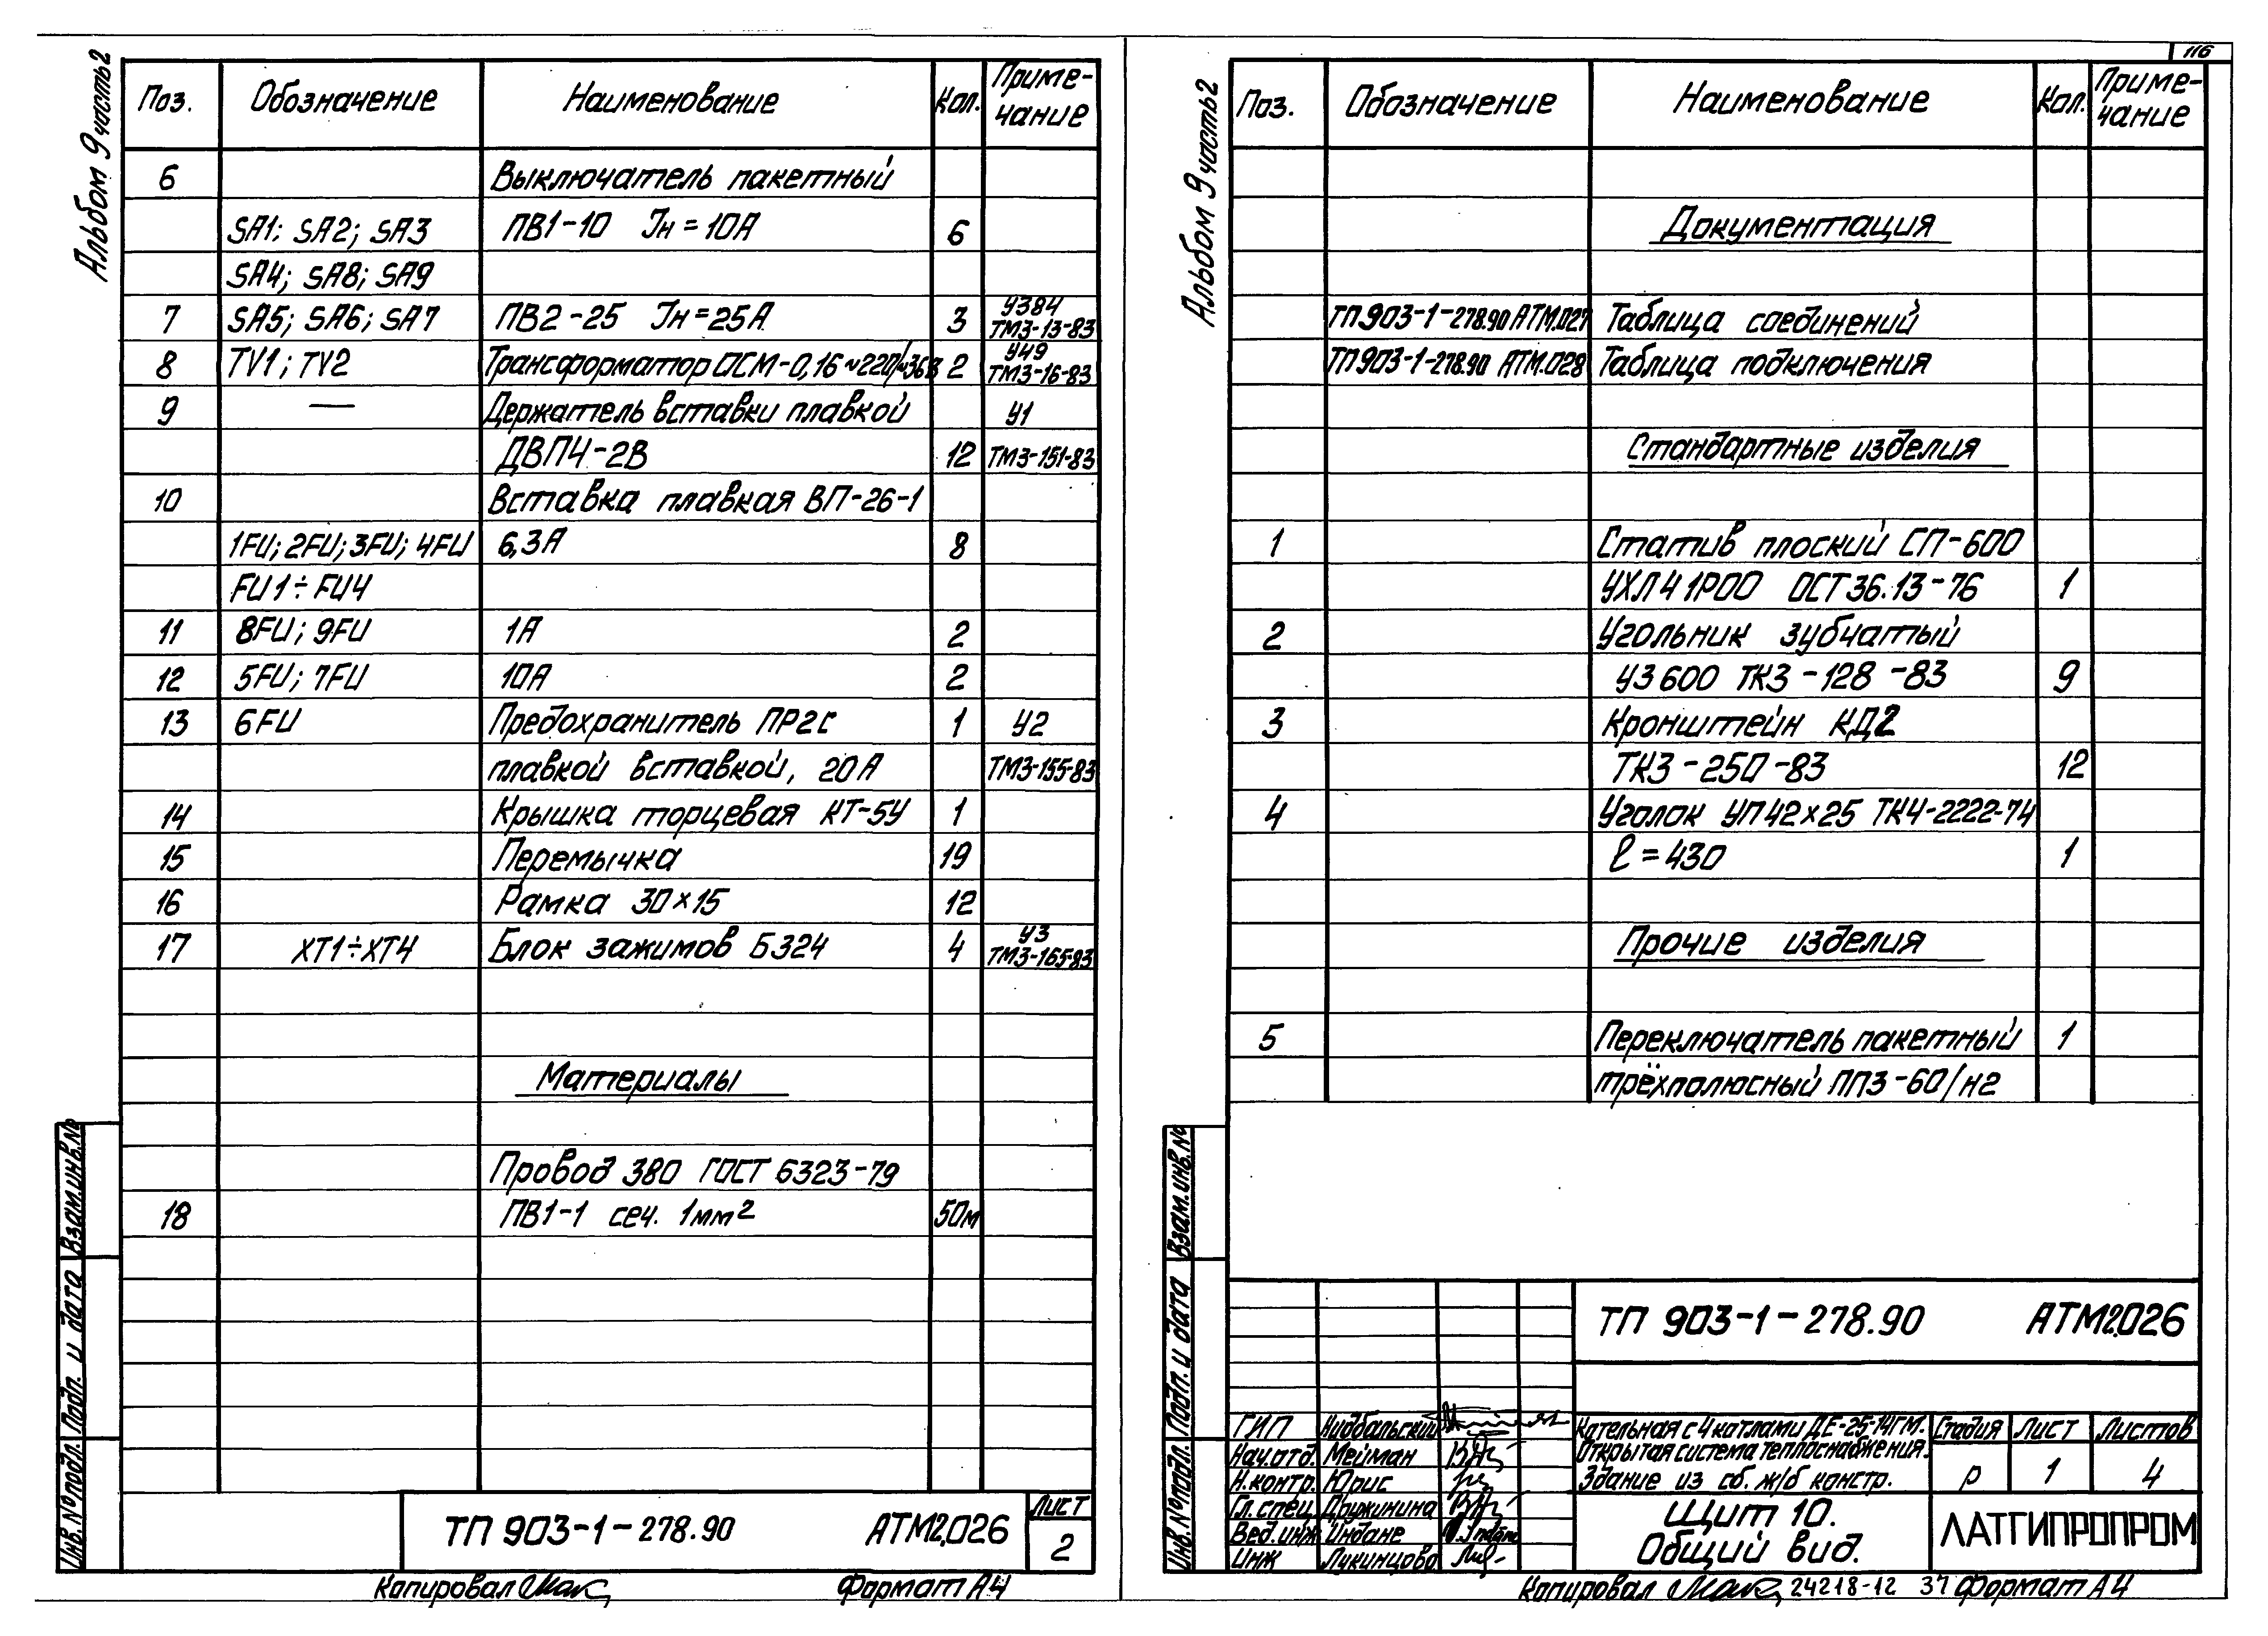 116
Альбом 9 часть 2
Поз. Обозначение Наименование Кол. Приме-
чание
6 Выключатель пакетный
SA1; SA2; SA3 ПВ1-10 Iн = 10А 6
SA4; SA8; SA9
7 SA5; SA6; SA7 ПВ2-25 Iн=25А 3 У384
ТМ3-13-83
8 TV1; TV2 Трансформатор ОСМ-0,16 ~220/~36В 2 У49
ТМ3-16-83
9 — Держатель вставки плавкой У1
ДВП4-2В 12 ТМ3-151-83
10 Вставка плавкая ВП-26-1
1FU; 2FU; 3FU; 4FU 6,3А 8
FU1÷FU4
11 8FU; 9FU 1А 2
12 5FU; 7FU 10А 2
13 6FU Предохранитель ПР2с 1 У2
плавкой вставкой, 20А ТМ3-155-83
14 Крышка торцевая КТ-5У 1
15 Перемычка 19
16 Рамка 30×15 12
17 XT1÷XT4 Блок зажимов Б324 4 У3
ТМ3-165-83
Материалы
Провод 380 ГОСТ 6323-79
18 ПВ1-1 сеч. 1мм2 50м
Взам.инв.№
Подп. и дата
Инв.№подл.
ТП 903-1-278.90 АТМ2.026
Лист
2
Копировал Формат А4
Альбом 9 часть 2
Поз. Обозначение Наименование Кол. Приме-
чание
Документация
ТП903-1-278.90 АТМ.027 Таблица соединений
ТП903-1-278.90 АТМ.028 Таблица подключения
Стандартные изделия
1 Статив плоский СП-600
УХЛ4 1Р00 ОСТ36.13-76 1
2 Угольник зубчатый
УЗ600 ТК3-128-83 9
3 Кронштейн КД2
ТК3-250-83 12
4 Уголок УП42×25 ТК4-2222-74
ℓ=430 1
Прочие изделия
5 Переключатель пакетный 1
трёхполюсный ПП3-60/н2
Взам.инв.№
Подп. и дата
Инв.№подл.
ТП 903-1-278.90 АТМ2.026
ГИП Нидбальский
Нач.отд. Мейман
Н.контр. Юрис
Гл.спец. Дружинина
Вед.инж Индане
Инж Лукинцова
Котельная с 4 котлами ДЕ-25-14ГМ.
Открытая система теплоснабжения.
Здание из сб. ж/б констр.
Стадия Лист Листов
р 1 4
Щит 10.
Общий вид.
ЛАТГИПРОПРОМ
Копировал 24218-12 37 Формат А4